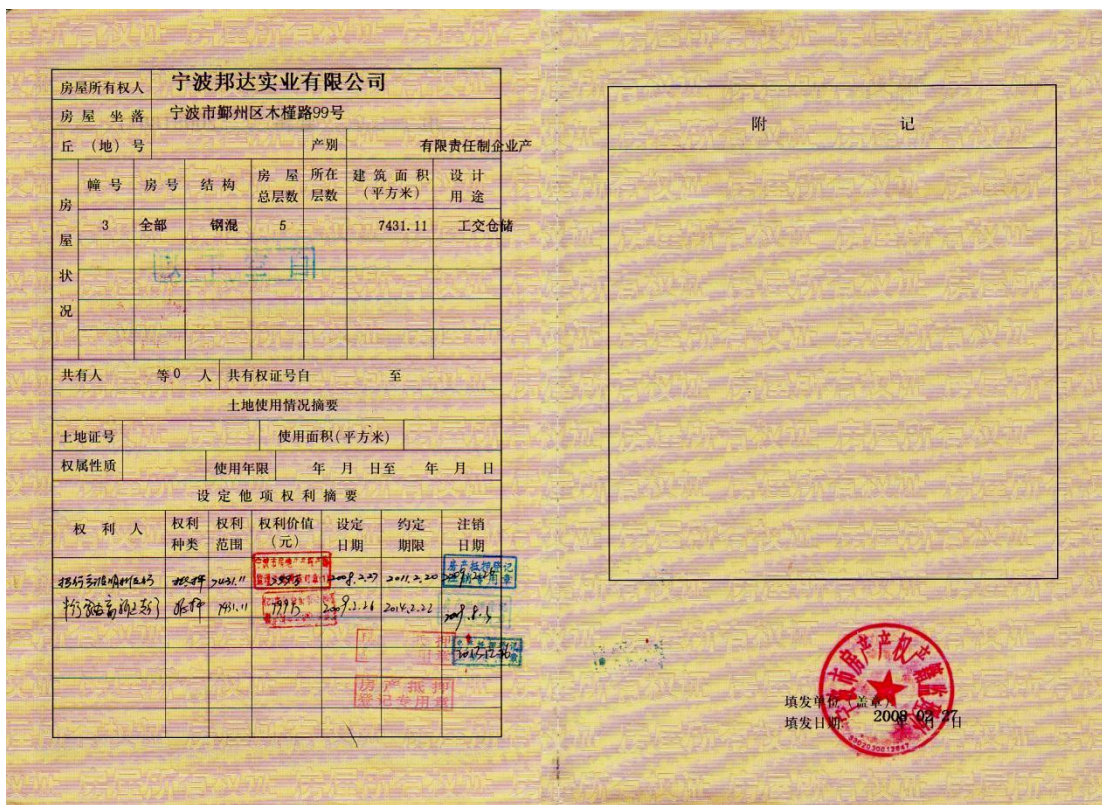 房屋所有权人 宁波邦达实业有限公司
房屋坐落 宁波市鄞州区木槿路99号
丘（地）号 产别 有限责任制企业产
房屋状况
幢号 房号 结构 房屋总层数 所在层数 建筑面积（平方米） 设计用途
3 全部 钢混 5 7431.11 工交仓储
共有人 等0人 共有权证号自 至
土地使用情况摘要
土地证号 使用面积(平方米)
权属性质 使用年限 年 月 日至 年 月 日
设定他项权利摘要
权利人 权利种类 权利范围 权利价值（元） 设定日期 约定期限 注销日期
抵押 7431.11 2008.2.27 2011.2.20
抵押 7431.11 2009.2.26 2014.2.22
房产抵押
登记专用章
附 记
填发单位（盖章）
填发日期: 2008 02 27 日